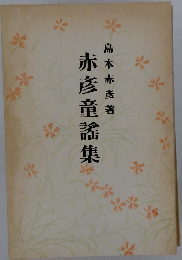 島木赤彦著
赤彦童謡集